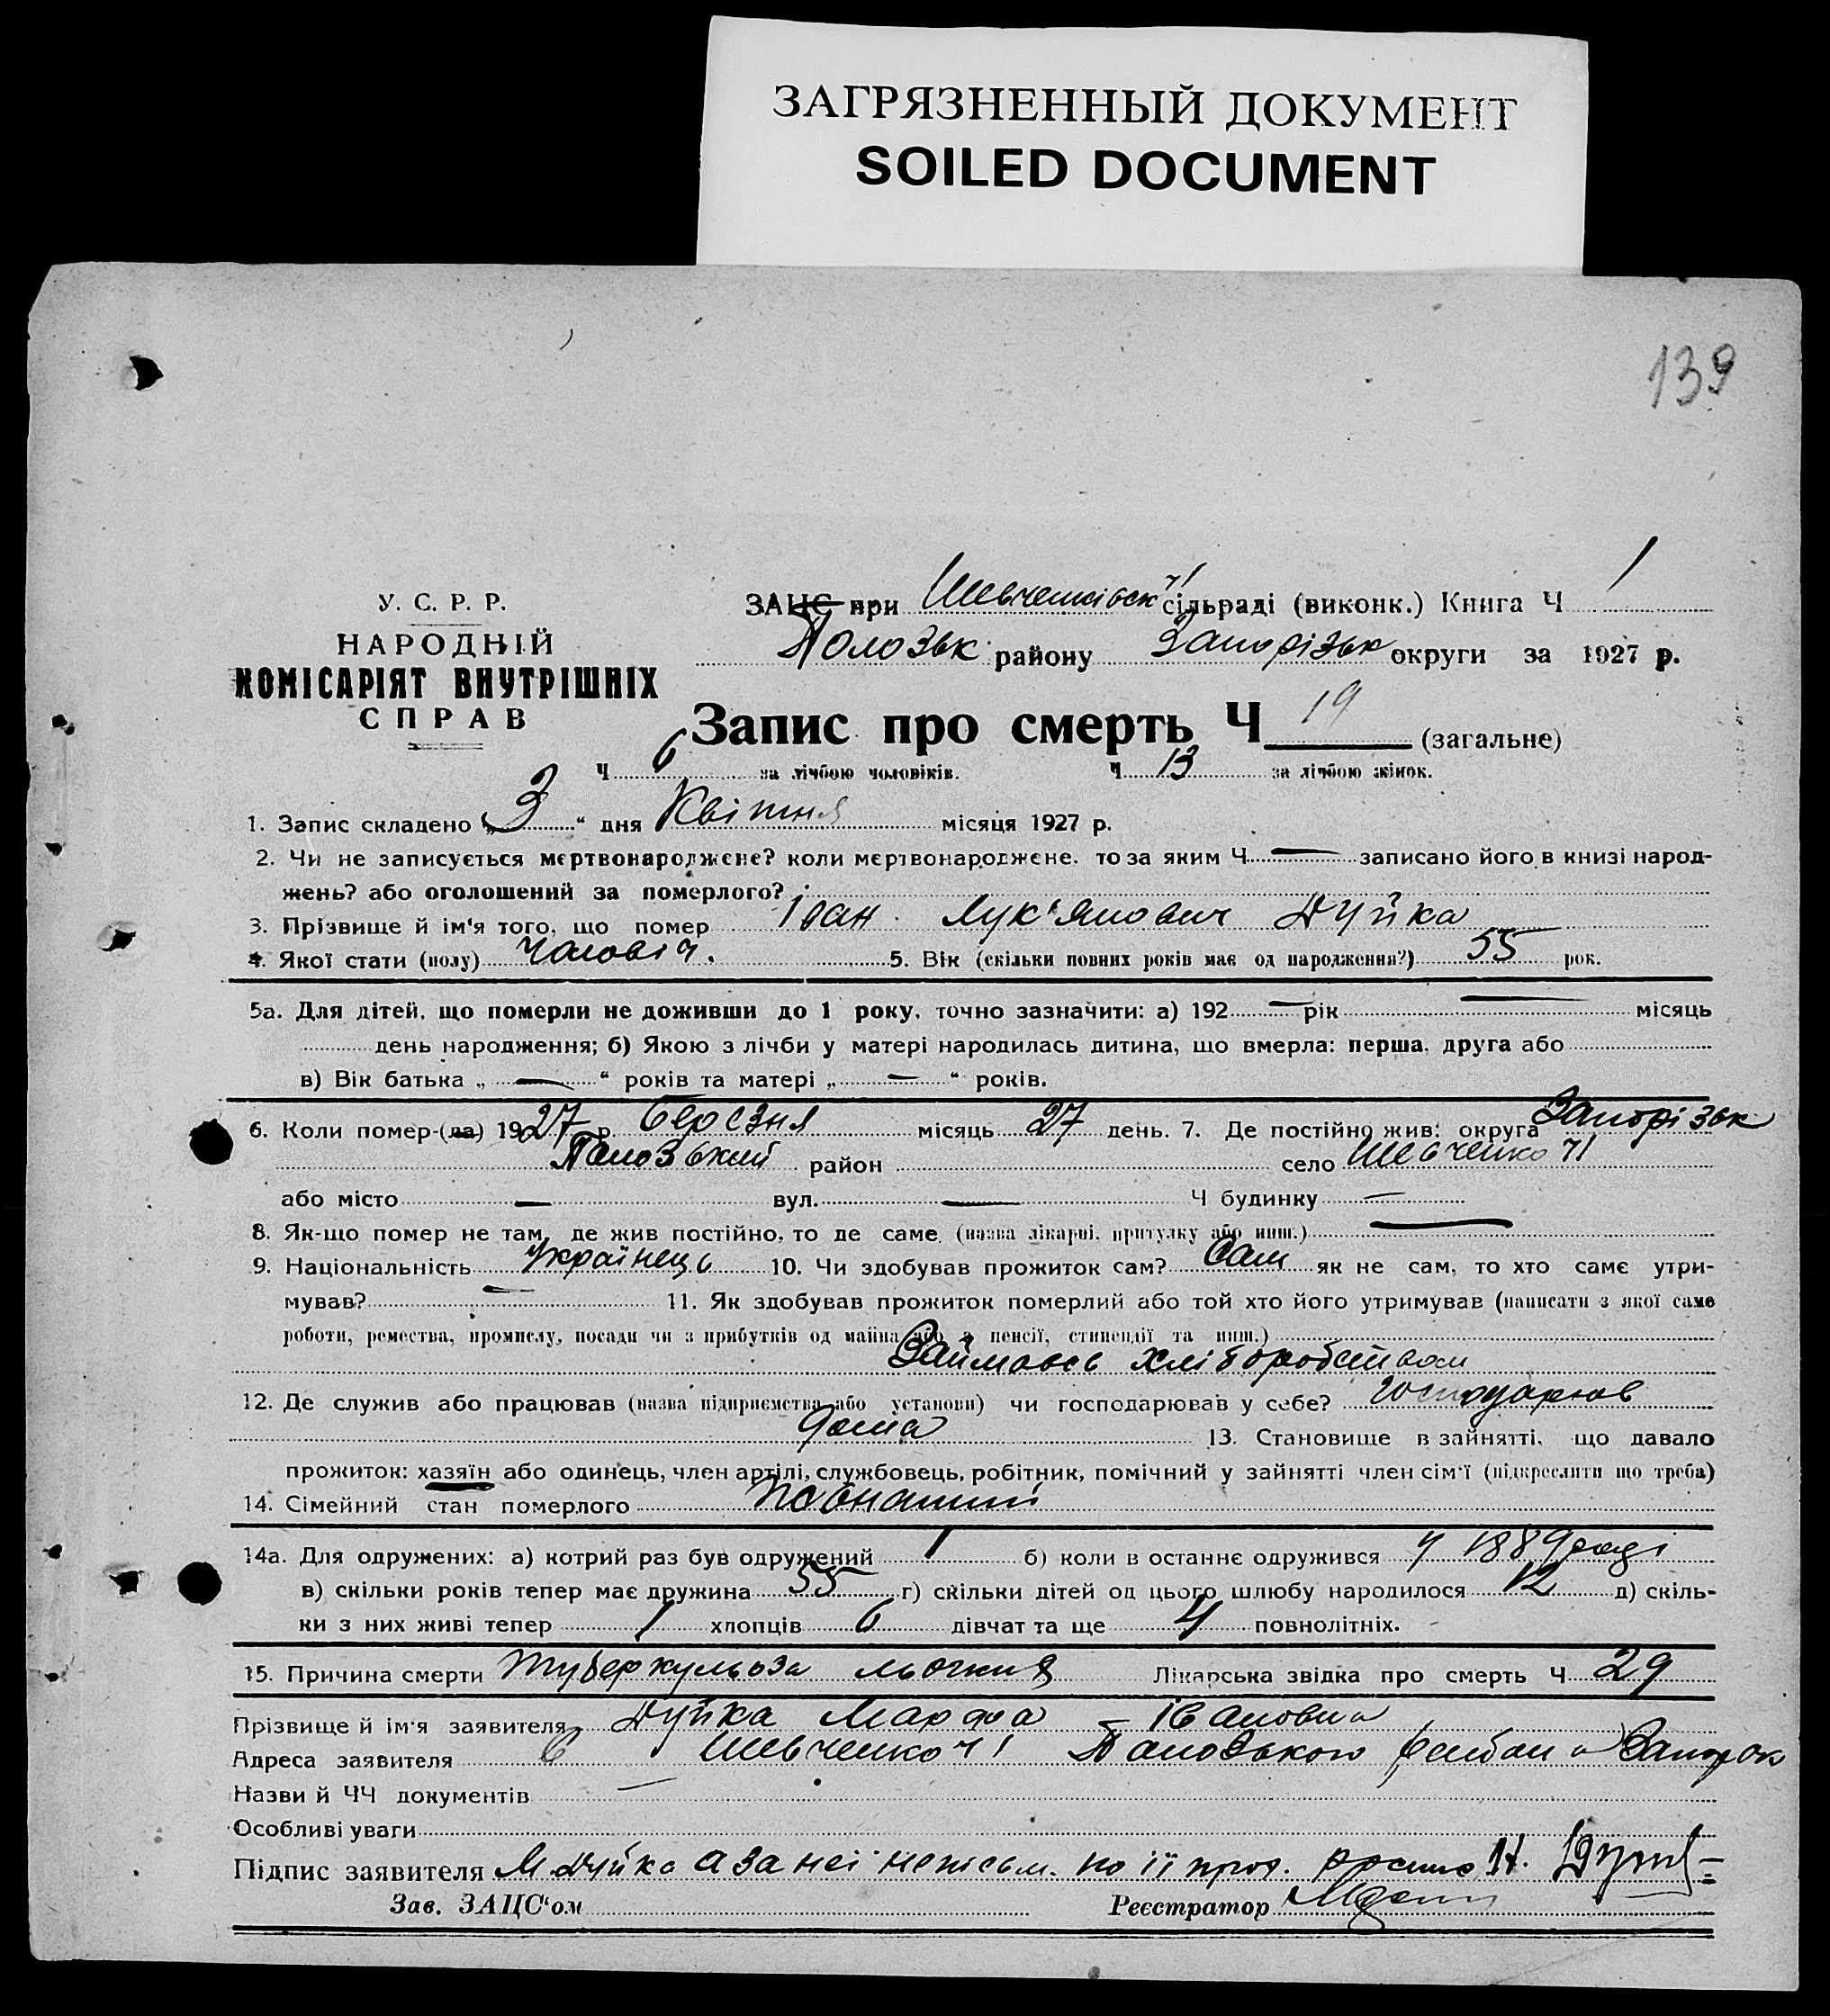 ЗАГРЯЗНЕННЫЙ ДОКУМЕНТ
SOILED DOCUMENT
139
У. С. Р. Р.
НАРОДНІЙ
КОМІСАРІЯТ ВНУТРІШНІХ
СПРАВ
ЗАЦС при Шевченківськ сільраді (виконк.) Книга Ч 1
Полозьк району Запорізьк округи за 1927 р.
Запис про смерть Ч 19 (загальне)
Ч 6 за лічбою чоловіків. Ч 13 за лічбою жінок.
1. Запис складено „ 3 “ дня Квітня місяця 1927 р.
2. Чи не записується мертвонароджене? коли мертвонароджене, то за яким Ч — записано його в книзі народ-
жень? або оголошений за померлого?
3. Прізвище й ім'я того, що помер Іван Лук'янович Дуйка
4. Якої стати (полу) Чоловіч. 5. Вік (скільки повних років має од народження?) 55 рок.
5а. Для дітей, що померли не доживши до 1 року, точно зазначити: а) 192 — рік — місяць
день народження; б) Якою з лічби у матері народилась дитина, що вмерла: перша, друга або
в) Вік батька „ — “ років та матері „ — “ років.
6. Коли помер-(ла) 1927 р. Березня місяць 27 день. 7. Де постійно жив: округа Запорізьк
Полозький район село Шевченко
або місто — вул. — Ч будинку —
8. Як-що помер не там, де жив постійно, то де саме (назва лікарні, притулку або инш.) —
9. Національність Українець 10. Чи здобував прожиток сам? Сам як не сам, то хто саме утри-
мував? — 11. Як здобував прожиток померлий або той хто його утримував (написати з якої саме
роботи, ремества, промислу, посади чи з прибутків од майна або з пенсії, стипендії та инш.)
Займаось хліборобством
12. Де служив або працював (назва підприємства або установи) чи господарював у себе? господарював
дома 13. Становище в зайнятті, що давало
прожиток: хазяїн або одинець, член артілі, службовець, робітник, помічний у зайнятті член сім'ї (підкреслити що треба)
14. Сімейний стан померлого
14а. Для одружених: а) котрий раз був одружений 1 б) коли в останнє одружився у 1889 році
в) скільки років тепер має дружина 55 г) скільки дітей од цього шлюбу народилося 12 д) скіль-
ки з них живі тепер 1 хлопців 6 дівчат та ще 4 повнолітніх.
15. Причина смерти Туберкульоза Лікарська звідка про смерть Ч 29
Прізвище й ім'я заявителя Дуйка Марфа Івановна
Адреса заявителя С Шевченко Полозького Запорок
Назви й ЧЧ документів —
Особливі уваги
Підпис заявителя М. Дуйка а за неї неписьм. по її
Зав. ЗАЦС'ом Реєстратор